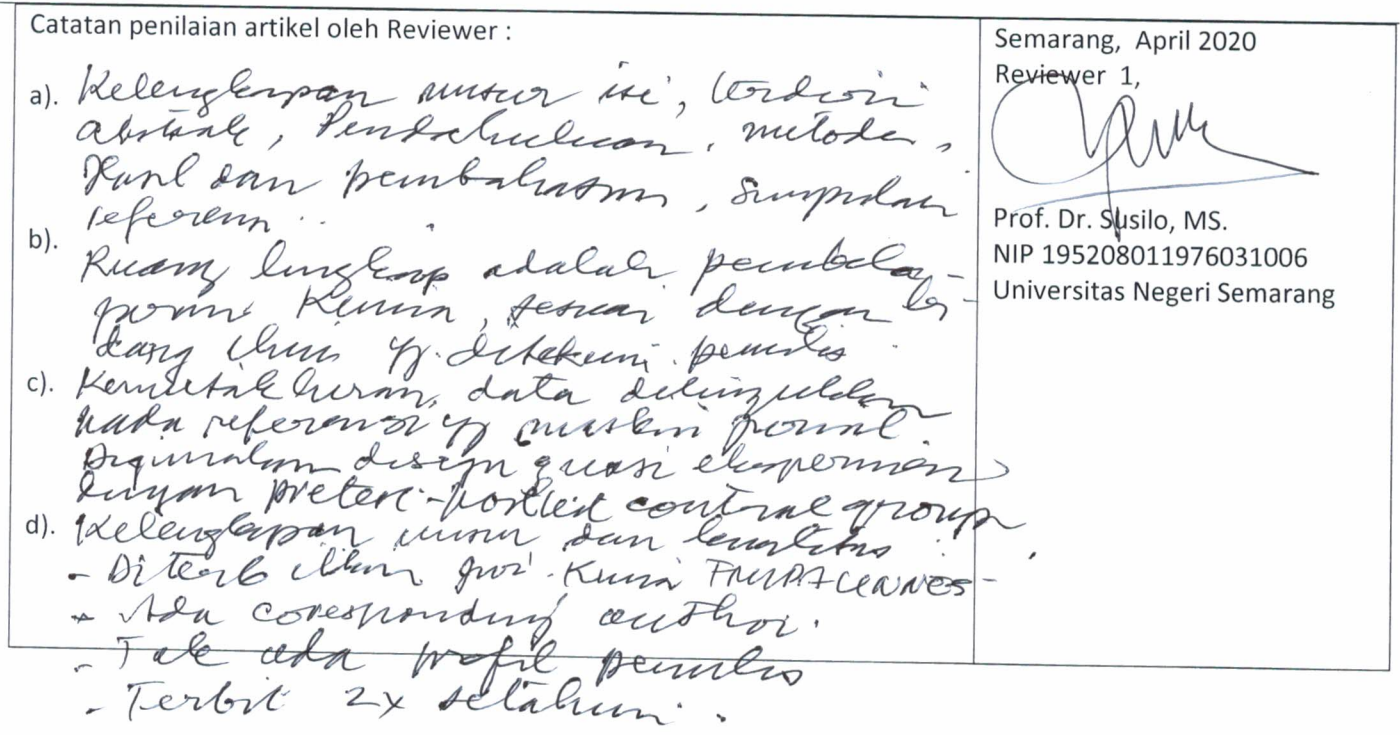 Catatan penilaian artikel oleh Reviewer :
a). Kelengkapan unsur isi, terdiri
abstrak, Pendahuluan, metoda,
Hasil dan pembahasan, Simpulan
referensi.
b). Ruang lingkup adalah pembela-
jaran Kimia, sesuai dengan bi-
dang ilmu yg. ditekuni penulis.
c). Kemutakhiran, data
pada referensi yg jurnal.
Digunakan disign quasi eksperimen
dengan pretest-posttest control group.
d). Kelengkapan unsur dan kualitas :
- Diterbitkan Kimia FMIPA UNNES
- Ada coresponding author.
- Tak ada profil penulis
- Terbit 2x setahun.
Semarang, April 2020
Reviewer 1,
Prof. Dr. Susilo, MS.
NIP 195208011976031006
Universitas Negeri Semarang